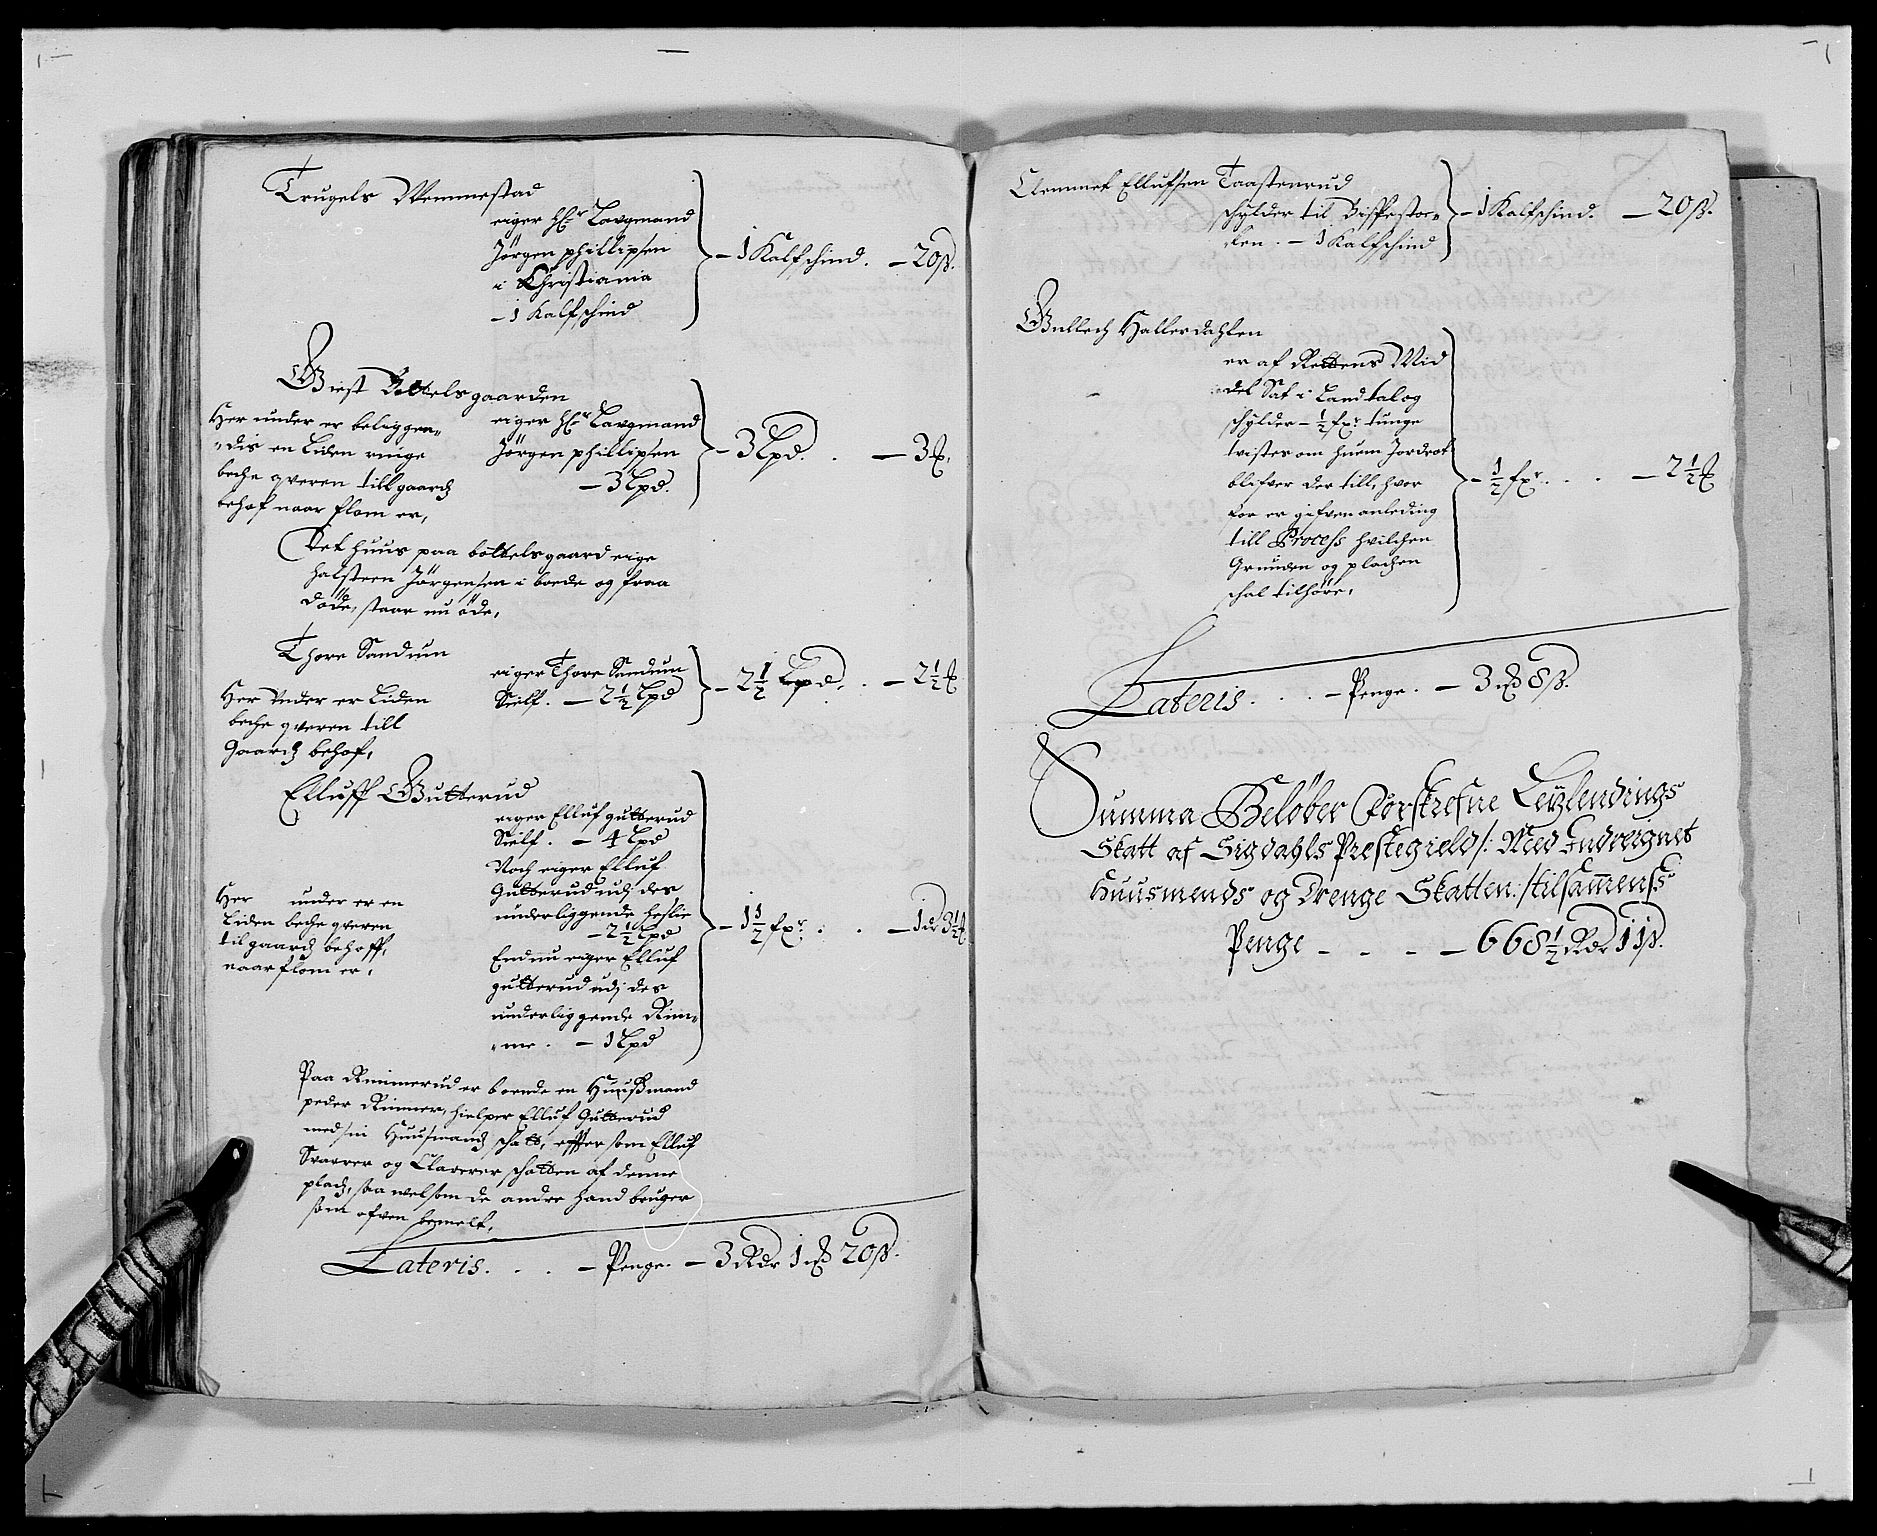 Trugels Wemmestad
eiger H:r Laugmand
Jörgen phillipsen
i Christiania
– 1 Kalfschind
– 1 Kalfschind. – 20 ß.
Giest Bottelsgaarden
Her under er beliggen„
„dis en Liden ringe
beche qveren till gaardz
behof naar flom er,
eiger H:r Laugmand
Jörgen phillipsen
– 3 Lpd.
– 3 Lpd. . – 3 ℔.
Det huus paa bottelsgaard eige
halsteen Jörgensen i boede og fraa
döde, staar nu öde,
Thore Sandum
Her under er Liden
beche qveren till
Gaardz behof,
eiger Thore Sandum
Sielf. – 2½ Lpd
– 2½ Lpd. . – 2½ ℔
Elluff Gutterud
Her under er en
Liden beche qveren
til gaardz behoff,
naar flom er,
eiger Elluf gutterud
Sielf. – 4 Lpd
Noch eiger Elluf
Gutterud udj des
underliggende
– 2½ Lpd
Endnu eiger Elluf
gutterud udj des
underliggende Rim„
„me. – 1 Lpd
– 1½ fxr: . . –
Paa Rimmerud er boende en Huußmand
peder Rimmer, hielper Elluf Gutterud
med sin Huusmandz schatt, effter som Elluf
Svarer og Clarerer schatten af denne
pladz, saa welsom de andre hand bruger
som ofven bemelt,
Lateris. . . – Penge. – 3 Rdr 1 20 ß.
Clemmet Ellufsen Taastenrud
schylder til Bispestoe„
len. – 1 Kalfschind
– 1 Kalfschind. – 20 ß.
Gullech Hallerdahlen
er af Rettens Mid
del Sat i Landtalog
schylder – ½ fxr: tunge
tvistes om huem Jordrot
blifver der till, hvor
for er gifven anleding
till Process hvilchen
Grunden og plachen
schal tilhöre,
– ½ fxr: . . – 2½ ℔
Lateris. . . – Penge. – 3 8 ß.
Summa Beløber Forskrefne Leylendings
Skatt af Sigdahls Prestegield /: Med Indreignet
Huusmends og Drenge Skatten :/ tilsammenss
Penge – – – – 668½ Rdr 11 ß.